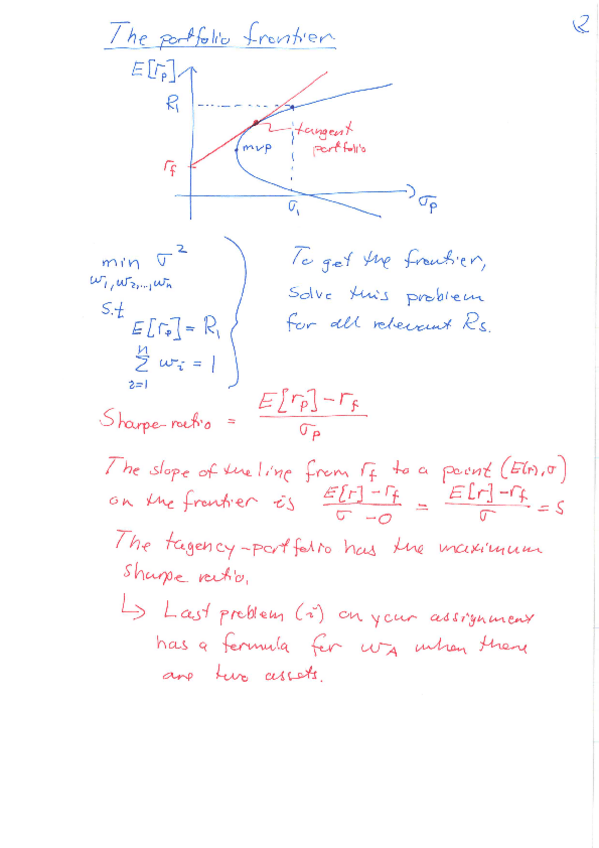 2
The portfolio frontier
E[r_p]
R_1
tangent
portfolio
mvp
r_f
σ_1
σ_p
min σ^2
w_1, w_2, ..., w_n
s.t
E[r_p] = R_1
n
Σ w_i = 1
i=1
To get the frontier,
solve this problem
for all relevant Rs.
Sharpe-ratio = (E[r_p] - r_f) / σ_p
The slope of the line from r_f to a point (E(r), σ)
on the frontier is (E[r] - r_f) / (σ - 0) = (E[r] - r_f) / σ = S
The tagency-portfolio has the maximum
sharpe ratio.
↳ Last problem (i) on your assignment
has a formula for w_A when there
are two assets.